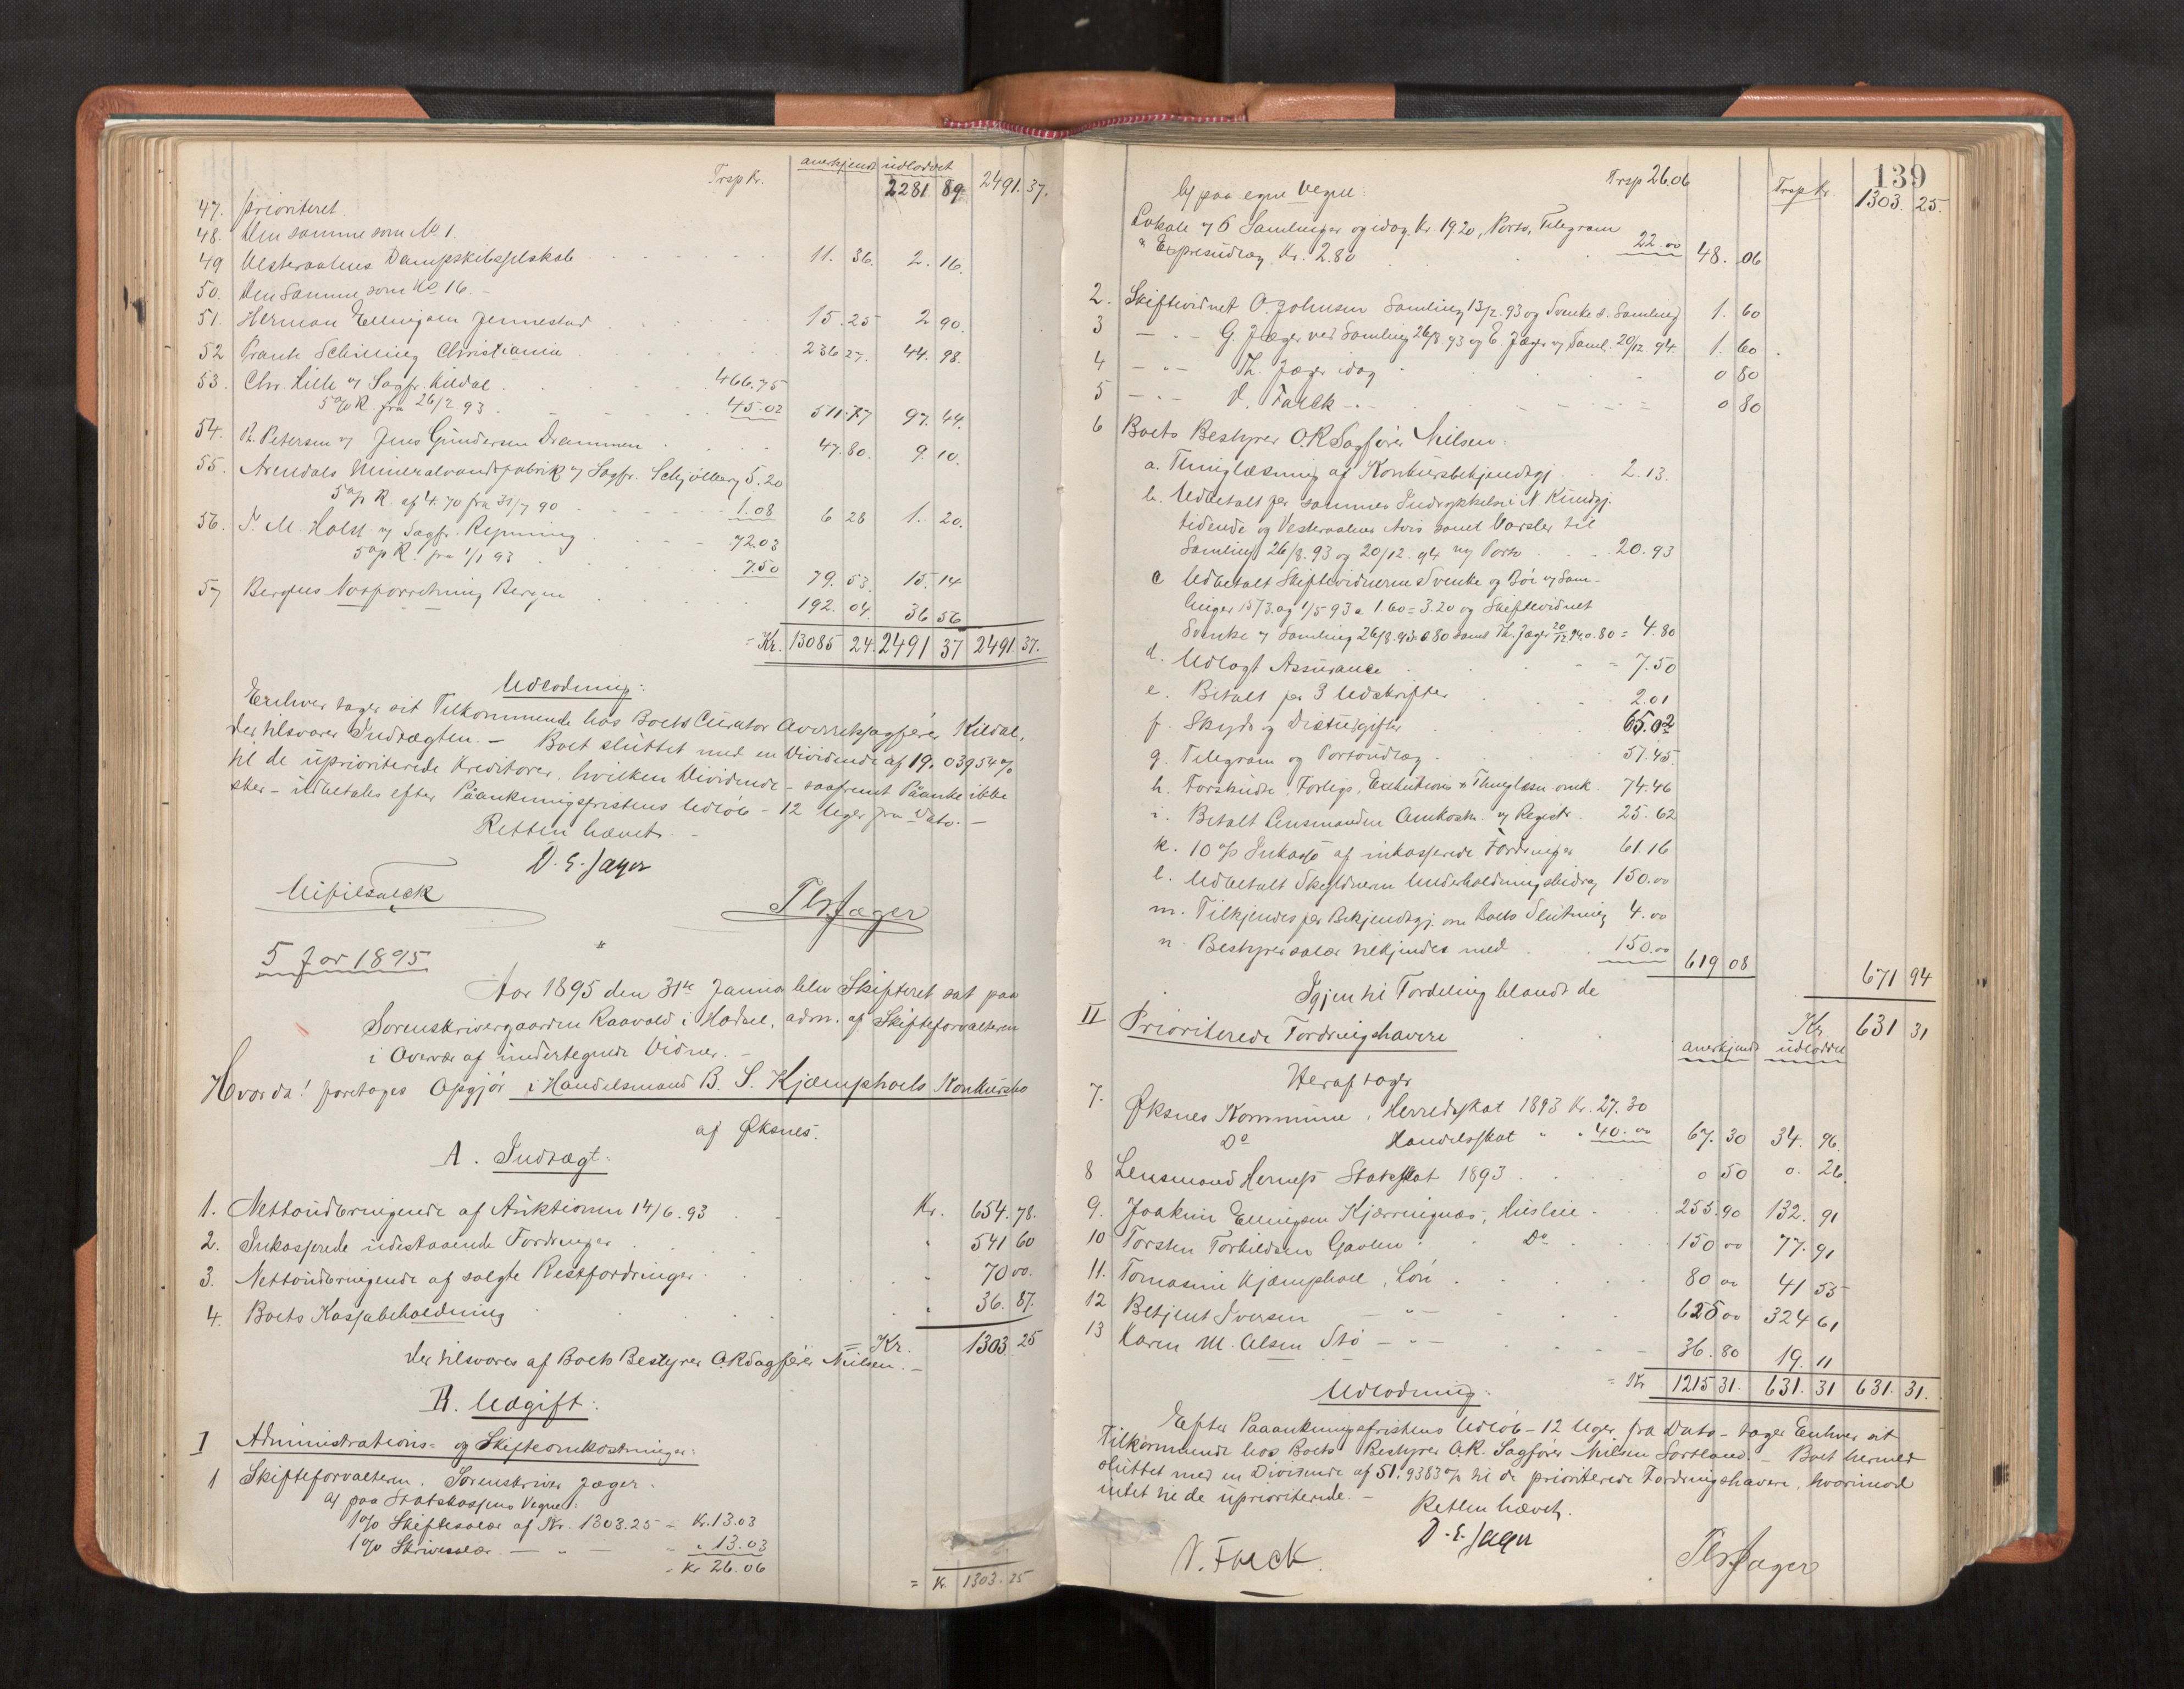 Trsp Kr. anerkjendt udloddet
2281 89 2491. 37.
47. prioriteret.
48. Den samme som No 1.
49 Vesteraalens Dampskibsselskab 11. 36. 2. 16.
50. Den Samme som No 16. -
51. Herman Ellingsen Jennestad 15. 25 2 90.
52 Frantz Schilling Christiania 236 27. 44. 98.
53. Chr. Lille v Sagfr. Kildal 466.75
5% R. fra 26/2 93 45.02 511.77 97. 44.
54. P. Petersen v Jens Gundersen Drammen 47. 80. 9. 10.
55. Arendals Mineralvandsfabrik v Sagfr. Schjølberg 5.20
5% R. af 4.70 fra 31/7 90 1.08 6 28 1. 20.
56. P. M. Holst v Sagfr. Repning 72.03
5% R. fra 1/1 93 7.50 79. 53. 15. 14
57 Bergens Notforretning Bergen 192. 04. 36 56
= Kr. 13085 24. 2491 37 2491 37.
Udlodning:
Enhver tager sit Tilkommende hos Boets Curator Overretssagfører Kildal,
der tilsvarer Indtægten. - Boet sluttet med en Dividende af 19,03954%
til de uprioriterede Kreditorer, hvilken Dividende - saafremt Paaanke ikke
sker - udbetales efter Paaankningsfristens Udløb - 12 Uger fra Dato. -
Retten hævet. -
D. E. Jæger
Th. Jæger
5 Jar 1895
Aar 1895 den 31te Januar blev Skifteret sat paa
Sorenskrivergaarden Raavold i Hadsel, adm. af Skifteforvalteren
i Overvær af undertegnede Vidner. -
Hvorda! foretages Opgjør i Handelsmand B. S. Kjæmphoels Konkursbo
af Øksnes.
A. Indtægt:
1. Nettoudbringende af Auktionen 14/6.93 Kr. 654.78.
2. Inkasserede udestaaende Fordringer " 541 60
3. Nettoudbringende af solgte Restfordringer " 70 00.
4. Boets Kassabeholdning " 36. 87.
= Kr. 1303 25
der tilsvares af Boets Bestyrer O.R.Sagfører Nilsen. -
B. Udgift:
I Administrations= og Skifteomkostninger:
1 Skifteforvalteren, Sorenskriver Jæger.
a/ paa Statskassens Vegne:
1% Skiftesalær af Kr. 1303.25 = Kr. 13.03
1% Skriversalær - " - " 13.03
= Kr 26.06
= Kr. 1303.25
139
Trsp 26.06 Trsp Kr. 1303. 25.
b/ paa egne Vegne:
Lokale v 6 Samlinger og idag Kr. 19.20, Porto, Telegram
& Expresudlæg Kr. 2.80 22.00 48. 06
2. Skiftevidnet O. Johnsen Samling 13/2.93 og Svenke s. Samling 1. 60
3 - " - G. Jæger ved Samling 26/8 93 og E. Jæger v Saml. 20/12 94. 1. 60
4 - " - Th. Jæger idag 0 80
5 - " - V. Falck - " - 0 80
6 Boets Bestyrer O.R.Sagfører Nilsen:
a. Thinglæsning af Konkursbekjendtgj. 2.13.
b. Udbetalt for sammes Indrykkelse i N. Kundgj.
tidende og Vesteraalens Avis samt Varsler til
Samling 26/8.93 og 20/12.94 og Porto 20.93
c Udbetalt Skiftevidnerne Svenke og Bøe v Sam-
linger 15/3. og 1/5 93 a 1.60 = 3.20 og Skiftevidnet
Svenke v Samling 26/8.93 0.80 samt Th. Jæger 20/12 94 0.80 = 4.80
d. Udlagt Assurance = 7.50
e. Betalt for 3 Udskrifter 2.01
f. Skyds og Diætudgifter 65.02
g. Telegram og Portoudlæg 51.45.
h. Forskudte Forligs, Exekutions & Thinglæsn. omk. 74.46
i. Betalt Lensmanden Omkostn. v Registr. 25.62
k. 10% Inkasso af inkasserede Fordringer 61.16
l. Udbetalt Skyldneren Underholdningsbidrag 150.00
m. Tilkjendes for Bekjendtgj. om Boets Slutning 4.00
n. Bestyrersalær tilkjendes med 150.00 619 08 671 94
Igjen til Fordeling blandt de Kr. 631 31
II Prioriterede Fordringshavere anerkjendt udloddet
Heraf tager
7. Øksnes Kommune, Herredsskat 1893 Kr. 27.30
Do Handelsskat " " 40.00 67. 30 34. 96.
8 Lensmand Hernes Statsskat 1893 0 50 0. 26
9. Joakim Ellingsen Kjærringnæs, Husleie 255.90 132. 91
10 Torsten Torkildsen Gavlen Do 150 00 77. 91
11. Tomasine Kjæmphoel, Løn 80 00 41 55
12 Betjent Iversen - " - 625 00 324 61
13 Karen M. Olsen Stø - " - 36. 80 19. 11
= Kr 1215 31. 631. 31 631. 31.
Udlodning:
Efter Paaankningsfristens Udløb - 12 Uger fra Dato - tager Enhver sit
Tilkommende hos Boets Bestyrer O.R. Sagfører Nilsen Sortland. - Boet hermed
sluttet med en Dividende af 51.9383% til de prioriterede Fordringshavere, hvorimod
intet til de uprioriterede. - Retten hævet.
D. E. Jæger
V. Falck. Th. Jæger